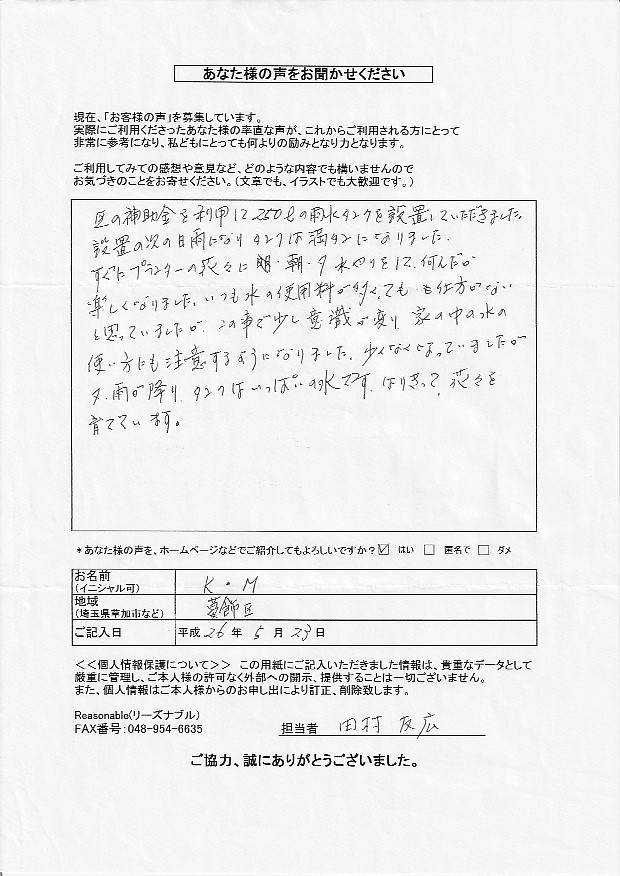 あなた様の声をお聞かせください
現在、「お客様の声」を募集しています。
実際にご利用くださったあなた様の率直な声が、これからご利用される方にとって
非常に参考になり、私どもにとっても何よりの励みとなり力となります。
ご利用してみての感想や意見など、どのような内容でも構いませんので
お気づきのことをお寄せください。(文章でも、イラストでも大歓迎です。)
区の補助金を利用して250ℓの雨水タンクを設置していただきました。
設置の次の日雨になりタンクは満タンになりました。
すぐにプランターの花々に 朝・夕水やりをして、何んだか
楽しくなりました。いつも水の使用料が多くても 仕方がない
と思っていましたが、この事で少し意識が変り 家の中の水の
使い方にも注意するようになりました。少くなくなっていましたが
夕、雨が降り、タンクはいっぱいの水です。はりきって、花々を
育てています。
*あなた様の声を、ホームページなどでご紹介してもよろしいですか? ☑ はい □ 匿名で □ ダメ
お名前
(イニシャル可) K・M
地域
(埼玉県草加市など) 葛飾区
ご記入日 平成 26 年 5 月 23 日
<<個人情報保護について>> この用紙にご記入いただきました情報は、貴重なデータとして
厳重に管理し、ご本人様の許可なく外部への開示、提供することは一切ございません。
また、個人情報はご本人様からのお申し出により訂正、削除致します。
Reasonable(リーズナブル)
FAX番号:048-954-6635 担当者 田村 友広
ご協力、誠にありがとうございました。